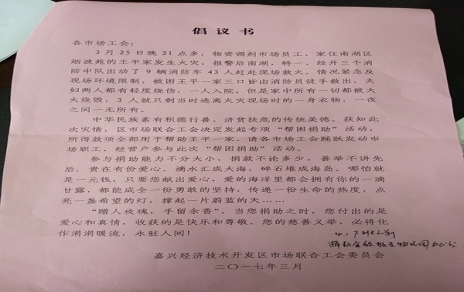 倡议书
各市场工会：
3月25日晚21点多，物资调剂市场员工，家住南湖区
烟波苑的王平家发生火灾，报警后南湖、特一、经开三个消
防中队出动了9辆消防车43人赶赴现场救火。情况紧急及
现场环境限制，被困王平一家三口皆由消防员徒手救出，夫
妇两人都有轻度烧伤，一人入院，但是家中所有一切都被大
火烧毁，3人就只剩当时逃离火灾现场时的一身衣物，一夜
之间一无所有。
中华民族素有积德行善、济贫扶危的传统美德，获知此
次火情，区市场联合工会决定发起专项“帮困捐助”活动，
所得款项全部用于帮助王平一家，请各市场工会踊跃发动市
场职工，经营户参与此次“帮困捐助”活动。
参与捐助能力不分大小，捐款不论多少，善举不讲先
后，贵在有份爱心，滴水汇成大海，碎石堆成海岛。哪怕就
是一元钱，只要您献出爱心，爱的海洋里都会拥有你的一滴
甘露，都能成全一份勇敢的坚持，传递一份生命的热度，点
亮一盏希望的灯，撑起一片蔚蓝的天……
“赠人玫瑰，手留余香”。当您捐助之时，您付出的是
爱心和真情，收获的是快乐和尊敬。您的慈善义举，必将化
作涓涓暖流，永驻人间！
嘉兴经济技术开发区市场联合工会委员会
二〇一七年三月